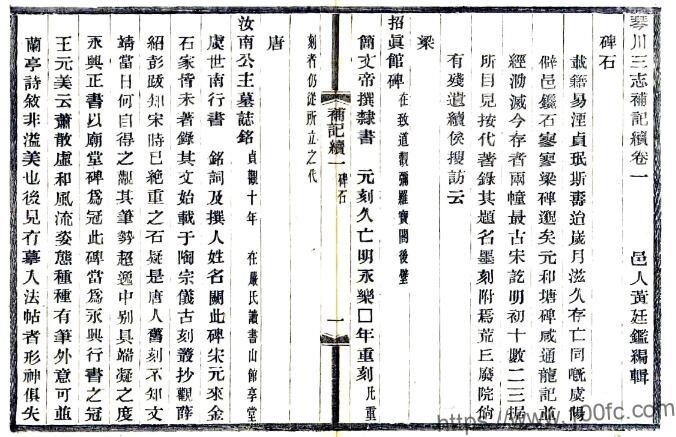 琴川三志補記續卷一　邑人黃廷鑑編輯
碑石
載籍易湮貞珉斯壽迨歲月滋久存亡同嘅虞陽
僻邑鑱石寥寥梁碑邈矣元和塘碑咸通龍記並
經泐滅今存者兩幢最古宋訖明初十數二三据
所目見按代著錄其題名墨刻附焉荒王廢院倘
有殘遺續俟搜訪云
梁
招眞館碑 在致道觀彌羅寶閣後壁
簡文帝撰隸書　元刻久亡明永樂□年重刻 凡重
補記續一 碑石
一
刻者仍從所立之代
唐
汝南公主墓誌銘 貞觀十年　在嚴氏讀書山館享堂
虞世南行書　銘詞及撰人姓名闕此碑宋元來金
石家皆未著錄其文始載于陶宗儀古刻叢抄觀薛
紹彭跋知宋時已絶重之石疑是唐人舊刻不知文
靖當日何自得之觀其筆勢超逸中别具端凝之度
永興正書以廟堂碑爲冠此碑當爲永興行書之冠
王元美云蕭散虛和風流姿態種種有筆外意可並
蘭亭詩敘非溢美也後見有摹入法帖者形神俱失
https://www.f00fc.com